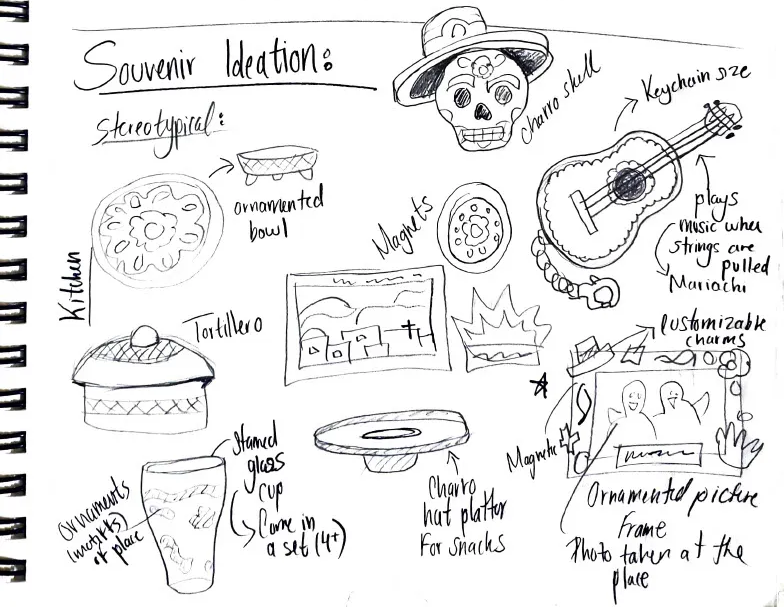 Souvenir Ideation:
Stereotypical:
charro skull
Keychain size
plays
music when
strings are
pulled
Mariachi
ornamented
bowl
Kitchen
Magnets
Tortillero
Customizable
charms
Magnetic
Ornamented picture
frame
Photo taken at the
place
Charro
hat platter
For snacks
glass
cup
Come in
a set (4+)
Ornaments
of place